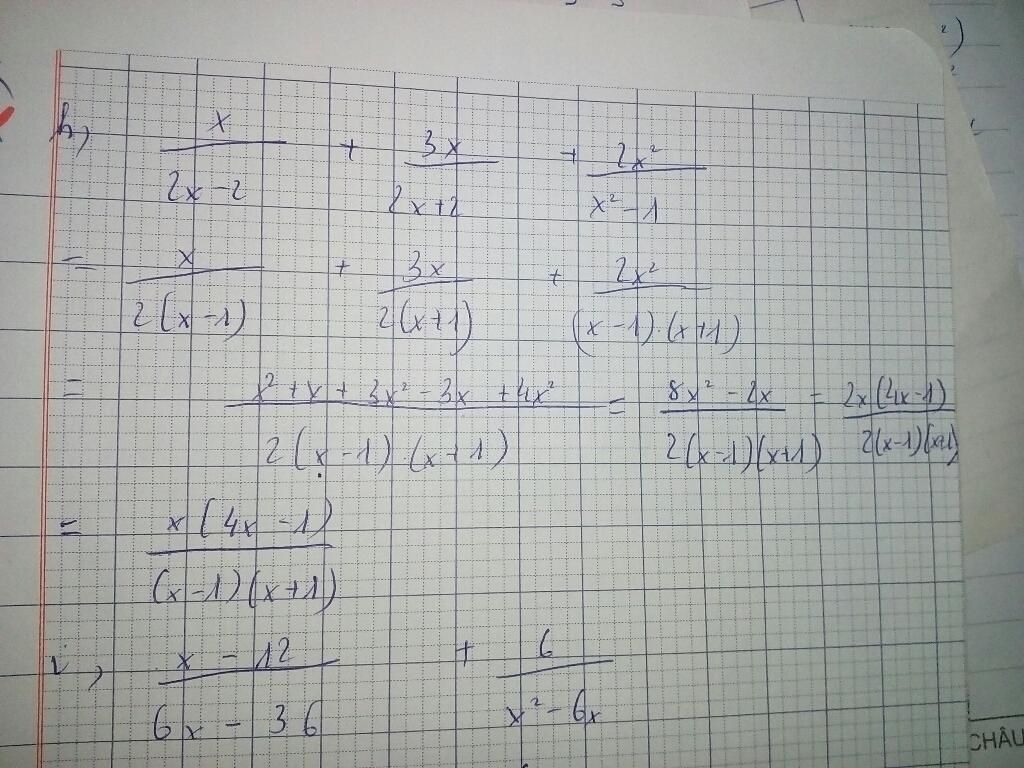 h, x/(2x-2) + 3x/(2x+2) + 2x²/(x²-1)
= x/(2(x-1)) + 3x/(2(x+1)) + 2x²/((x-1).(x+1))
= (x²+x+3x²-3x+4x²)/(2(x-1).(x+1)) = (8x²-2x)/(2(x-1)(x+1)) = (2x(4x-1))/(2(x-1)(x+1))
= (x(4x-1))/((x-1)(x+1))
i, (x-12)/(6x-36) + 6/(x²-6x)
CHÂU